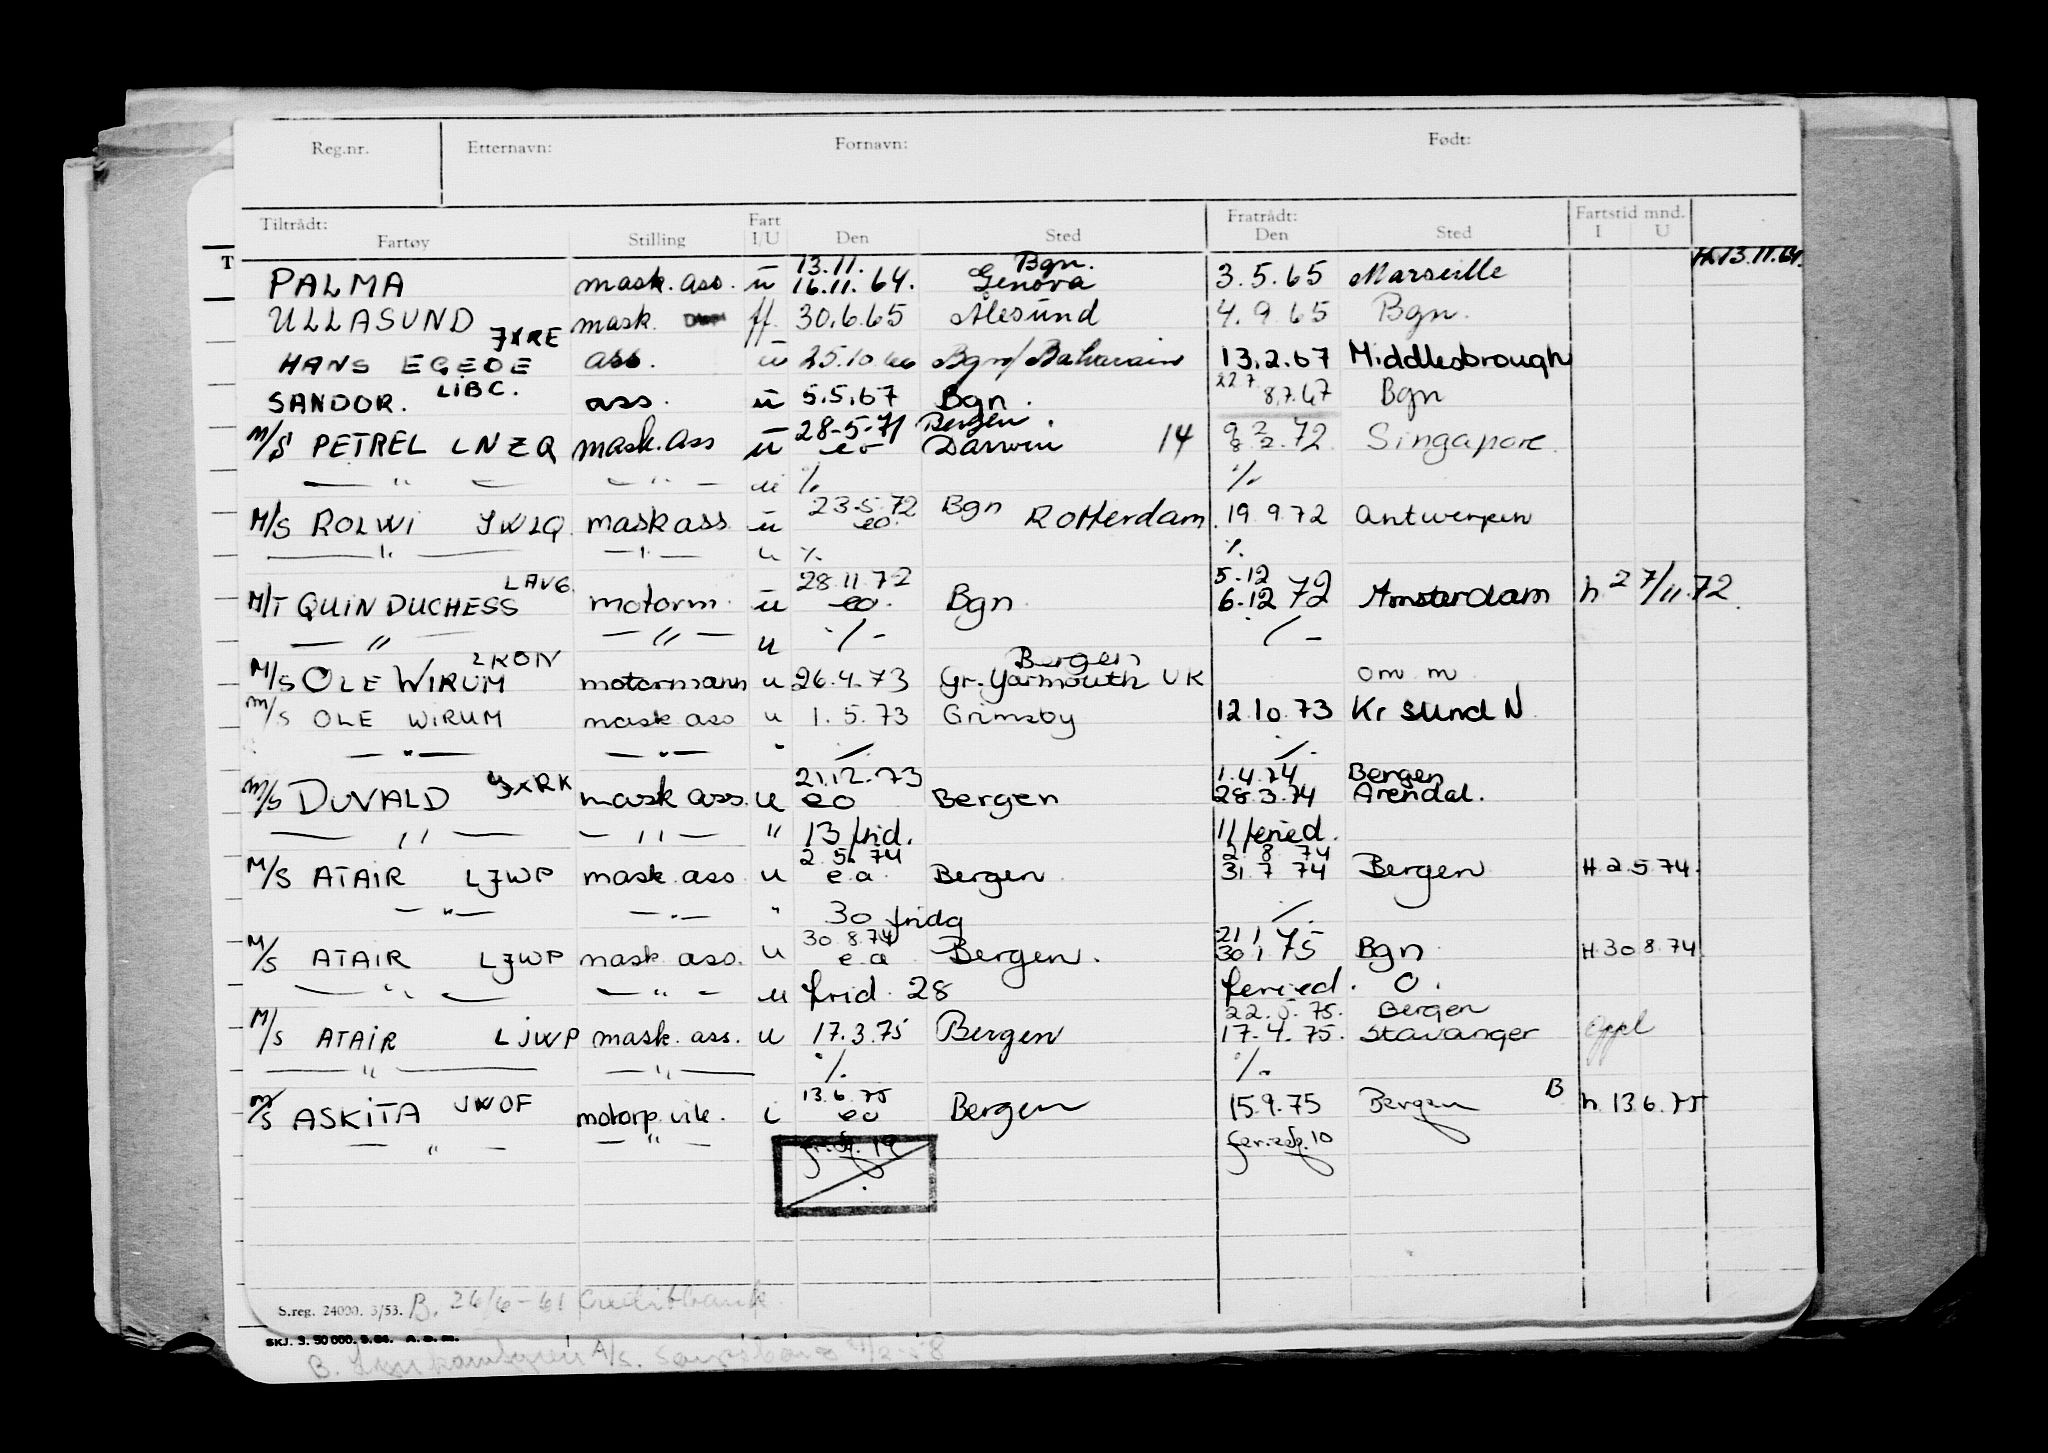 Reg.nr. Etternavn: Fornavn: Født:
Tiltrådt: Fart Fratrådt: Fartstid mnd.
Fartøy Stilling I/U Den Sted Den Sted I U
T
13.11. Bgn. H. 13.11.64.
PALMA mask. ass. u 16.11.64. Genova 3.5.65 Marseille
ULLASUND mask. ff. 30.6.65 Ålesund 4.9.65 Bgn.
JXRE
HANS EGEDE ass. u 25.10.66 Bgn/Bahrain 13.2.67 Middlesbrough
LIBC. 22 7
SANDOR. ass. u 5.5.67 Bgn. 8.7.67 Bgn
28-5-71 Bergen. 9 2
M/S PETREL LNZQ mask. ass u eo Darwin 14 8.2.72 Singapore.
— " — — " — u % %
23.5.72 Bgn
M/S ROLWI JWLQ mask ass u eo. Rotterdam. 19 9.72 Antwerpen
— " — — " — u % %
LAVG. 28.11.72 5.12
M/T QUIN DUCHESS motorm. u eo. Bgn 6.12 72 Amsterdam h 27/11.72.
— " — — " — u ·/- /-
LKON Bergen
M/S OLE WIRUM motormann u 26.4.73 Gr. Yarmouth UK om m
M/S OLE WIRUM mask ass u 1.5.73 Grimsby 12.10.73 Kr sund N
— " — — " — " ·/. ·/.
21.12.73 1.4.74 Bergen
M/S DUVALD JXRK mask ass. u eo Bergen 28.3.74 Arendal.
— " — — " — " 13 frid. 11 feried.
2.5.74 2.8.74
M/S ATAIR LJWP mask. ass. u e.a. Bergen. 31.7 74 Bergen H.2.5.74.
— " — — " — " 30 fridg ·/.
30.8.74 21 1
M/S ATAIR LJWP mask. ass. u e.a Bergen. 30.1 75 Bgn H.30.8.74.
— " — — " — u frid. 28 feried. 0.
22.5.75. Bergen
M/S ATAIR LJWP mask. ass. u 17.3.75 Bergen 17.4.75. Stavanger Oppl
— " — — " — % %
13.6.75
M/S ASKITA JWOF motorp. vik. i eo Bergen 15.9.75 Bergen B h. 13.6.75
— " — — " — fr.dg. 19 fer.dg. 10
S.reg. 24000. 3/53. B. 26/6-61 Creditbank
SKJ. 3. 50 000. A/S. Sarpsborg